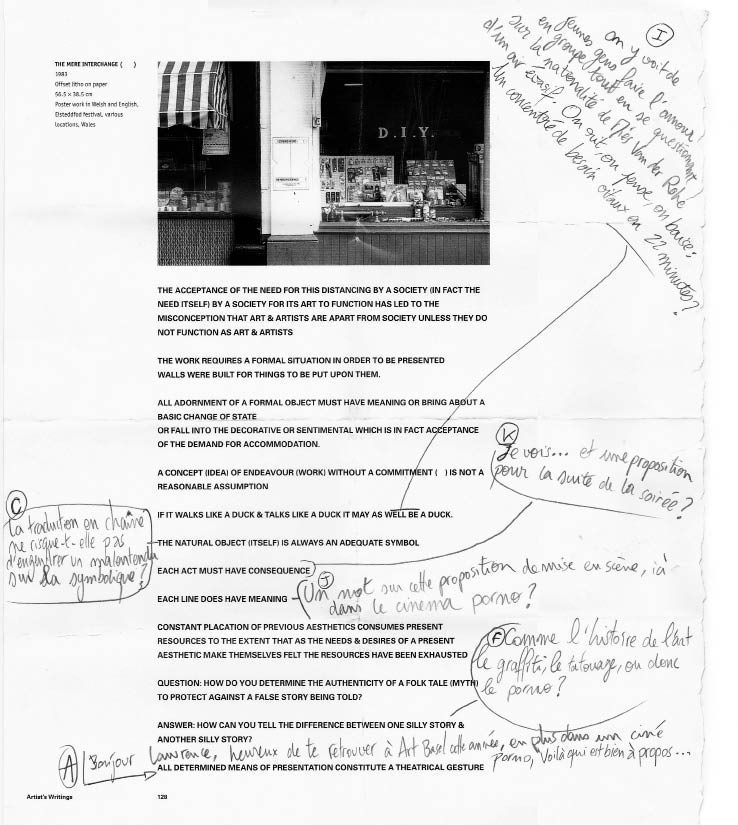 THE MERE INTERCHANGE (      )
1983
Offset litho on paper
56.5 × 38.5 cm
Poster work in Welsh and English,
Eisteddfod festival, various
locations, Wales
D.I.Y.
I
on y voit de
jeunes gens faire l'amour
en groupe tout en se questionnant
sur la nationalité de Mies Van der Rohe
d'un air évasif. On out, on pense, on baise :
Un concentré de besoin vitaux en 22 minutes ?
THE ACCEPTANCE OF THE NEED FOR THIS DISTANCING BY A SOCIETY (IN FACT THE
NEED ITSELF) BY A SOCIETY FOR ITS ART TO FUNCTION HAS LED TO THE
MISCONCEPTION THAT ART & ARTISTS ARE APART FROM SOCIETY UNLESS THEY DO
NOT FUNCTION AS ART & ARTISTS
THE WORK REQUIRES A FORMAL SITUATION IN ORDER TO BE PRESENTED
WALLS WERE BUILT FOR THINGS TO BE PUT UPON THEM.
ALL ADORNMENT OF A FORMAL OBJECT MUST HAVE MEANING OR BRING ABOUT A
BASIC CHANGE OF STATE
OR FALL INTO THE DECORATIVE OR SENTIMENTAL WHICH IS IN FACT ACCEPTANCE
OF THE DEMAND FOR ACCOMMODATION.
A CONCEPT (IDEA) OF ENDEAVOUR (WORK) WITHOUT A COMMITMENT (   ) IS NOT A
REASONABLE ASSUMPTION
K
Je vois... et une proposition
pour la suite de la soirée ?
IF IT WALKS LIKE A DUCK & TALKS LIKE A DUCK IT MAY AS WELL BE A DUCK.
C
La traduction en chaîne
ne risque-t-elle pas
d'engendrer un malentendu
sur la symbolique ?
THE NATURAL OBJECT (ITSELF) IS ALWAYS AN ADEQUATE SYMBOL
EACH ACT MUST HAVE CONSEQUENCE
EACH LINE DOES HAVE MEANING
J
Un mot sur cette proposition de mise en scène, ici
dans le cinema porno ?
CONSTANT PLACATION OF PREVIOUS AESTHETICS CONSUMES PRESENT
RESOURCES TO THE EXTENT THAT AS THE NEEDS & DESIRES OF A PRESENT
AESTHETIC MAKE THEMSELVES FELT THE RESOURCES HAVE BEEN EXHAUSTED
F
Comme l'histoire de l'art
le graffiti, le tatouage, ou donc
le porno ?
QUESTION: HOW DO YOU DETERMINE THE AUTHENTICITY OF A FOLK TALE (MYTH)
TO PROTECT AGAINST A FALSE STORY BEING TOLD?
ANSWER: HOW CAN YOU TELL THE DIFFERENCE BETWEEN ONE SILLY STORY &
ANOTHER SILLY STORY?
A
Bonjour Lawrence, heureux de te retrouver à Art Basel cette année, en plus dans un ciné
porno, Voilà qui est bien à propos...
ALL DETERMINED MEANS OF PRESENTATION CONSTITUTE A THEATRICAL GESTURE
Artist's Writings
128